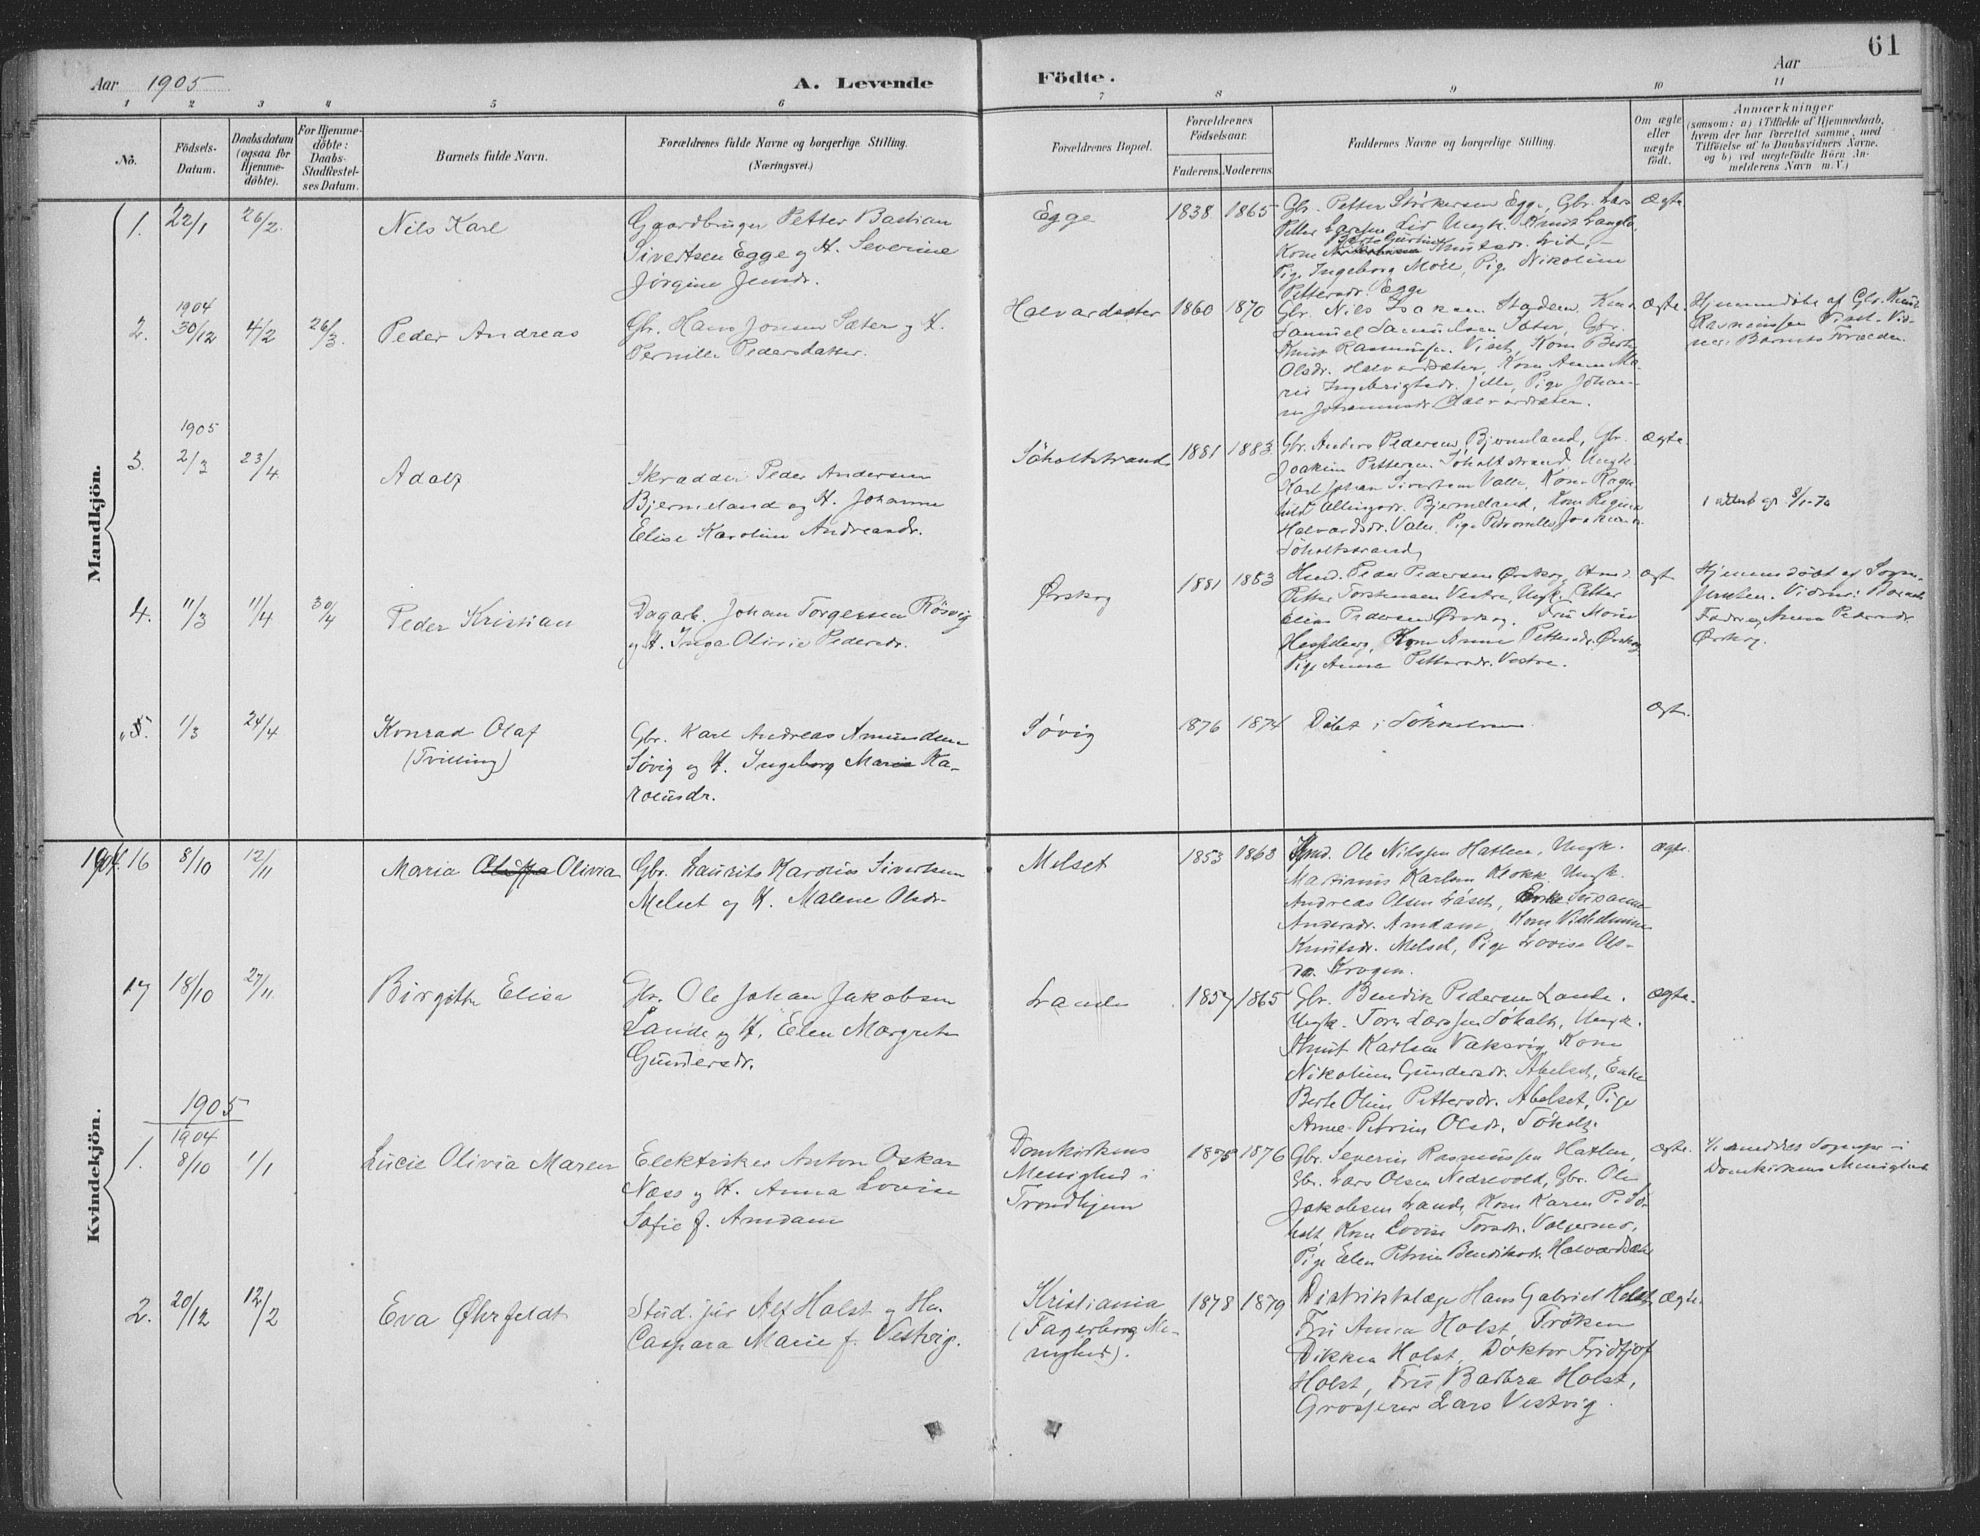 61
Aar 1905
A. Levende
Födte.
Aar
1 2 3 4 5 6 7 8 9 10 11
No.
Födsels-
Datum.
Daabsdatum
(ogsaa for
Hjemme-
döbte).
For Hjemme-
döbte:
Daabs-
Stadfæstel-
ses Datum.
Barnets fulde Navn.
Forældrenes fulde Navne og borgerlige Stilling.
(Næringsvei.)
Forældrenes Bopæl.
Forældrenes
Födselsaar.
Faderens. Moderens.
Faddernes Navne og borgerlige Stilling.
Om ægte
eller
uægte
födt.
Anmærkninger
(saasom: a) i Tilfælde af Hjemmedaab,
hvem der har forrettet samme, med
Tilföielse af to Daabsvidners Navne.
og b) ved uægtefödte Börn An-
melderens Navn m. V.)
Mandkjön.
1. 22/1 26/2.
Nils Karl
Gaardbruger Petter Bastian
Sivertsen Egge og H. Severine
Jørgine Jensdr.
Egge
1838 1865
Gbr. Petter Størkersen Egge, Gbr. Lars
Petter Larsen Lid, Ungk. Knut
Kone Knutsdr. Lid,
Pige Ingeborg Moll, Pige Nikoline
Pettersdr. Egge
Ægte
2. 1904
30/12 4/2 26/3.
Peder Andreas
Gbr. Hans Jonsen Sæter og H.
Pernille Pedersdatter.
Halvardsæter
1860 1870
Gbr. Nils Isaksen Staden,
Samuel Samuelsen Sæter, Gbr.
Knut Rasmussen Viset, Kone Berte
Olsdr. Halvardsæter, Kone Anne Ma-
rie Ingebrigtsdr. Jelle, Pige Johan-
ne Johannesdr. Halvardsæter.
Ægte.
Hjemmedøbt af Gbr. Knut
Rasmussen Viset. Vid-
ner: Barnets Forældre.
1905
3. 2/3 23/4
Adolf
Skrædder Peder Andersen
Bjermeland og H. Johanne
Elise Karoline Andreasdr.
Søholtstrand
1881 1883
Gbr. Anders Pedersen Bjermeland, Gbr.
Joakim Pettersen Søholtstrand, Ungk.
Karl Johan Sivertsen Valle, Kone Ragn-
hild Ellingsdr. Bjermeland, Kone Regine
Halvardsdr. Valle, Pige Petronelle
Søholtstrand,
Ægte.
1 attest gr 8/1-70
4. 11/3 11/4 30/4
Peder Kristian
Dagarb. Johan Torgersen Røsvig
og H. Inga Olivie Pedersdr.
Ørskog
1881 1883
Husm. Peder Pedersen Ørskog, Husm.
Petter Torstensen Vestre, Ungk. Petter
Elias Pedersen Ørskog, Fru Marie
Hesselberg, Kone Anne Pettersdr. Ørskog
Pige Anne Pettersdr. Vestre.
Ægt.
Hjemmedøbt af Sogne-
presten. Vidner: Barnets
Fader og Anne Pedersdr.
Ørskog.
„5. 1/3 24/4
Konrad Olaf
(Tvilling)
Gbr. Karl Andreas Amundsen
Søvig og H. Ingeborg Marie Ka-
rolusdr.
Søvig
1876 1874
Døbt i
Ægt.
Kvindekjön.
1904. 16 8/10 12/11
Maria Olivia
Gbr. Laurits Karolus Sivertsen
Melset og H. Malene Olsdr.
Melset
1853 1863
Husm. Ole Nilssen Hatlen, Ungk.
Martinus Karlsen Klokk, Ungk.
Andreas Olsen Låset, Enke Susanne
Andersdr. Amdam, Kone Vilhelmine
Knutsdr. Melset, Pige Lovise Ols-
dr. Krogen.
Ægte.
17 18/10 27/11
Birgitte Elise
Gbr. Ole Johan Jakobsen
Lande og H. Elen Margrete
Gundersdr.
Lande
1857 1865
Gbr. Bendik Pedersen Lande.
Ungk. Tore Larssen Søholt, Ungk.
Knut Karlsen Vaksvig, Kone
Nikoline Gundersdr. Abelset, Enke
Berte Oline Pettersdr. Abelset, Pige
Anne Petrine Olsdr. Søholt.
Ægte.
1905
1. 1904
8/10 1/1
Lucie Olivia Maren
Elektriker Anton Oskar
Næss og H. Anna Lovise
Sofie f. Amdam
Domkirkens
Menighed i
Trondhjem
1875 1876
Gbr. Severin Rasmussen Hatlen,
Gbr. Lars Olsen Nedrevold, Gbr. Ole
Jakobsen Lande, Kone Karen P. Sø-
holt, Kone Lovise Toresdr. Valgermo,
Pige Elen Petrine Bendiksdr. Halvardsæter
Ægte.
1/1 anmeldt Sognepr. i
Domkirkens Menighed
2. 20/12 12/2
Eva Øhrfeldt
Stud. jur. Alf Holst og Hu.
Caspara Marie f. Vestvig.
Kristiania
(Fagerborg Me-
nighed).
1878 1879
Distriktslæge Hans Gabriel Holst,
Fru Anna Holst, Frøken
Dikken Holst, Doktor Fridtjof
Holst, Fru Barbra Holst,
Grosserer Lars Vestvig.
Ægte.